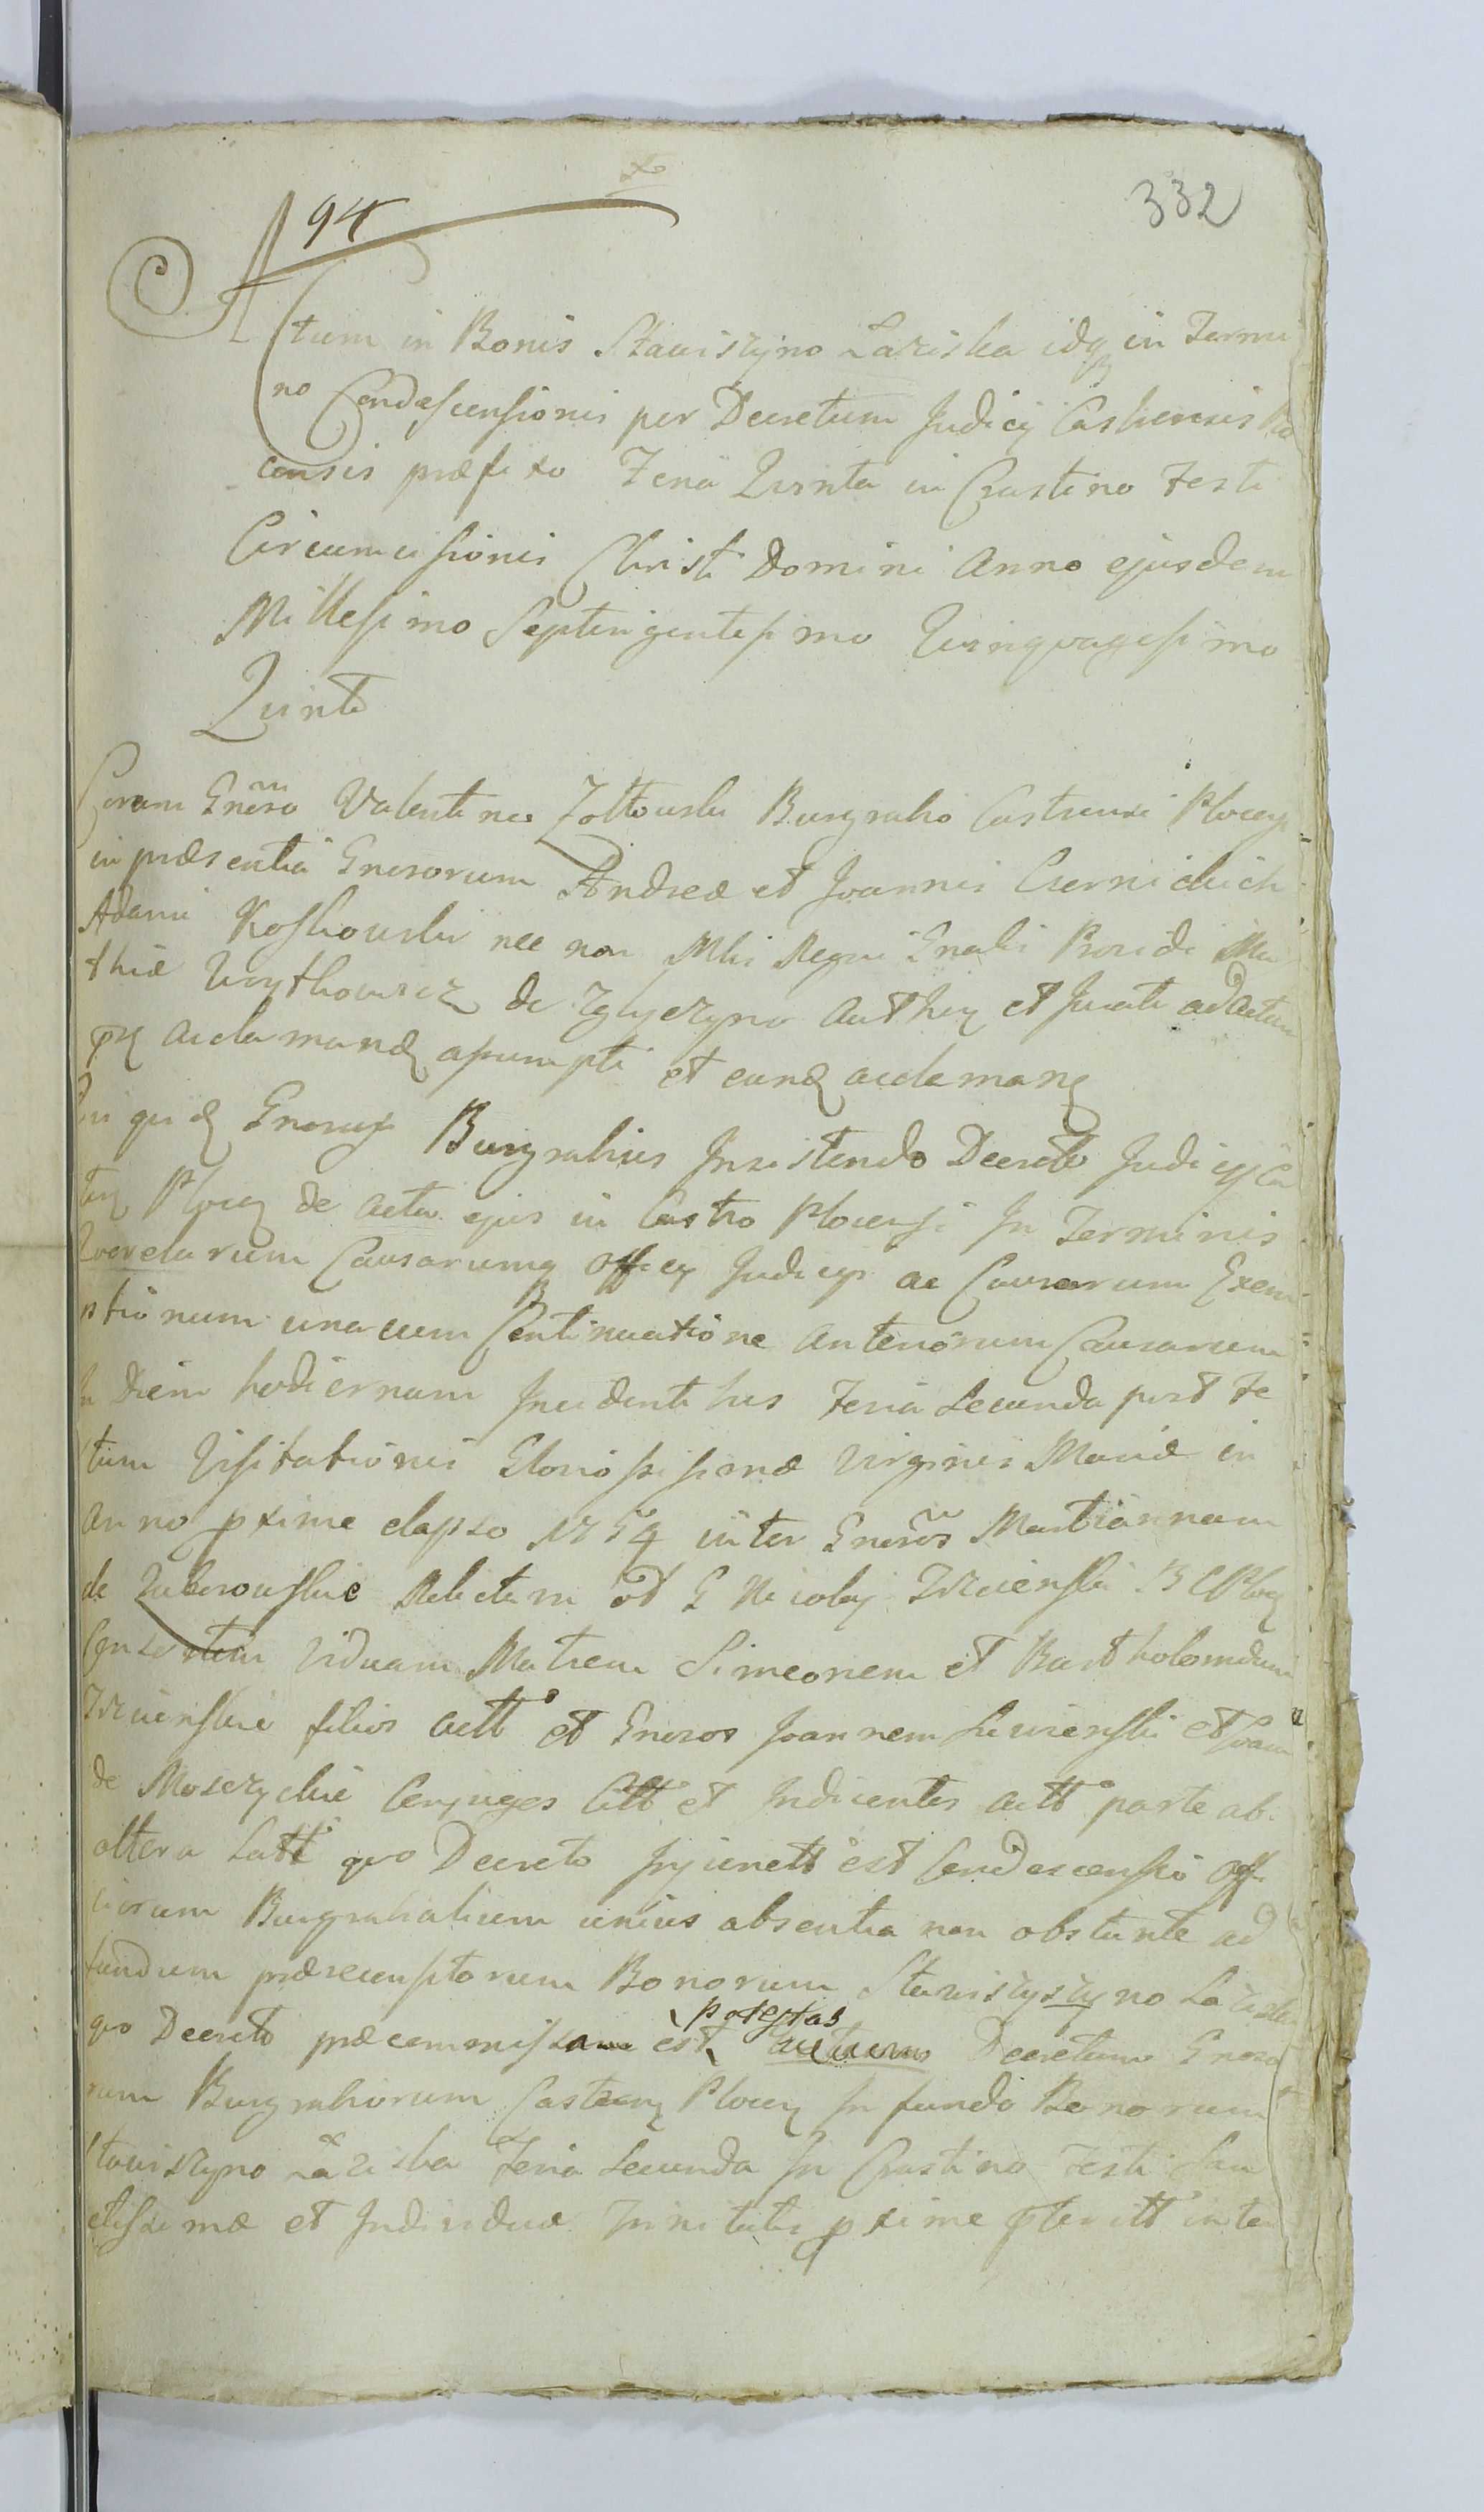 332
94
Actum in Bonis Stawiszyno Łaziska idq in Termi
no Condescensionis per Decretum Judicij Castrensis Plo
censis præfixo Feria Quinta in Crastino Festi
Circumcisionis Christi Domini Anno ejusdem
Millesimo Septingentesimo Quinquagesimo
Quinto
Coram Gnroso Valentino Zołtowski Burgrabio Castrensi Plocen
in præsentia Gnrosorum Andreæ et Joannis
Adami nec non Mli Regni Gnalis Providi Ma
thiæ de et Jurati ad Actum
acclamand assumpti et eund acclaman
Qui quid Gnrosus Burgrabius Insistendo Decreto Judicij Ca
Plocen de actu ejus in Castro Plocensi In Terminis
Querelarum Causarumq Officij Judicijq ac Causarum Exem
ptionum una cum Continuatione anteriorum Causarum
In Diem hodiernam Incidentibus Feria Secunda post Fe
stum Visitationis Gloriosissimæ Virginis Mariæ in
anno pxime elapso 1754 inter Gnrosos Mariannam
de Relictam G Nicolaj
Consortem Viduam Matrem Simeonem et Bartholomæum
filios actt et Gnrosos Joannem et
de Conjuges Citt et Indicentes actt parte ab
altera Latt quo Decreto Injunctt est Condescensio Offi
ciorum Burgrabialium unius absentia non obstante ad
fundum prærecensitorum Bonorum Stawiszyszyno Łaziska
quo Decreto præcommissa est potestas Decretum Gnroso
rum Burgrabiorum Castren Plocen In fundo Bonorum
Stawiszyno Łaziska Feria Secunda In Crastino Festi San
ctissimæ et Individuæ Trinitatis pxime pteritt inter